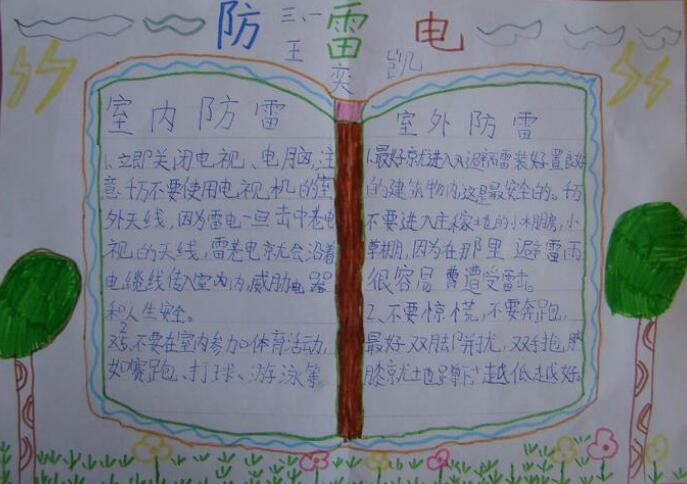 防雷电
三、一
王奕凯
室内防雷
1、立即关闭电视、电脑,注
意千万不要使用电视机的室
外天线,因为雷电一旦击中卷电
视的天线,雷卷电京就会沿着
电缆线传入室内,威胁电器
和人生安全。
2、不要在室内参加体育活动,
如赛跑、打球、游泳等
室外防雷
1、最好京尤进入避雷装好置良好
的建筑物内,这是最安全的。千万
不要进入庄稼地的小木棚房,小
草棚,因为在那里避雷雨
很容易遭受雷击。
2、不要惊慌,不要奔跑,
最好双脚并扰,双手抱膝
膝京尤地蹲下越低越好。